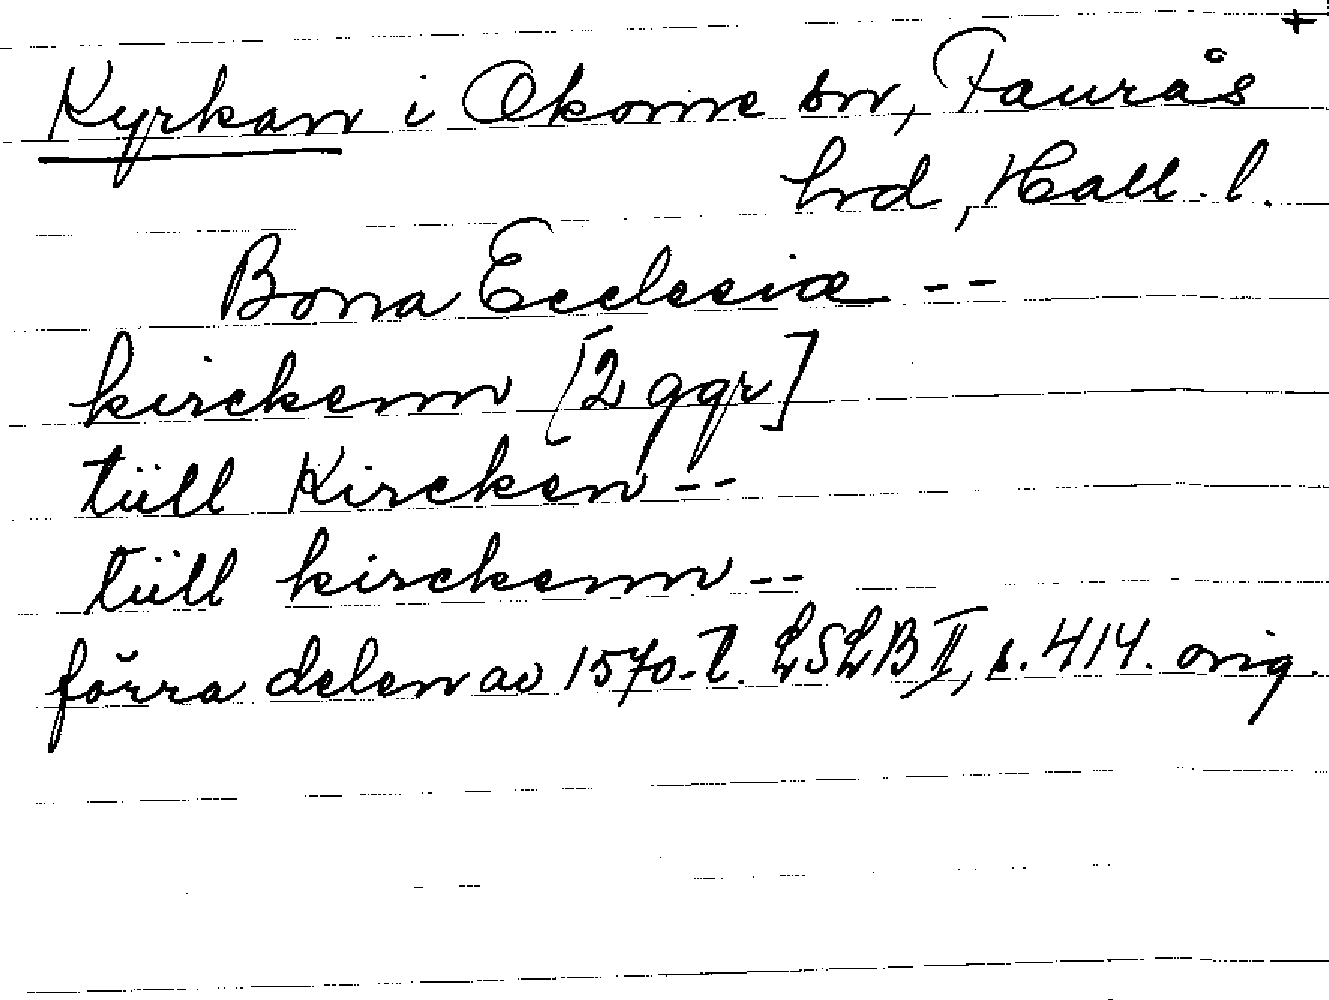 +
Kyrkan i Okome sn, Faurås
hrd, Hall. l.
Bona Ecclesiæ --
kirckenn [2 ggr]
tüll Kircken --
tüll kirckenn --
förra delen av 1570-t. LSLB II, s. 414. orig.